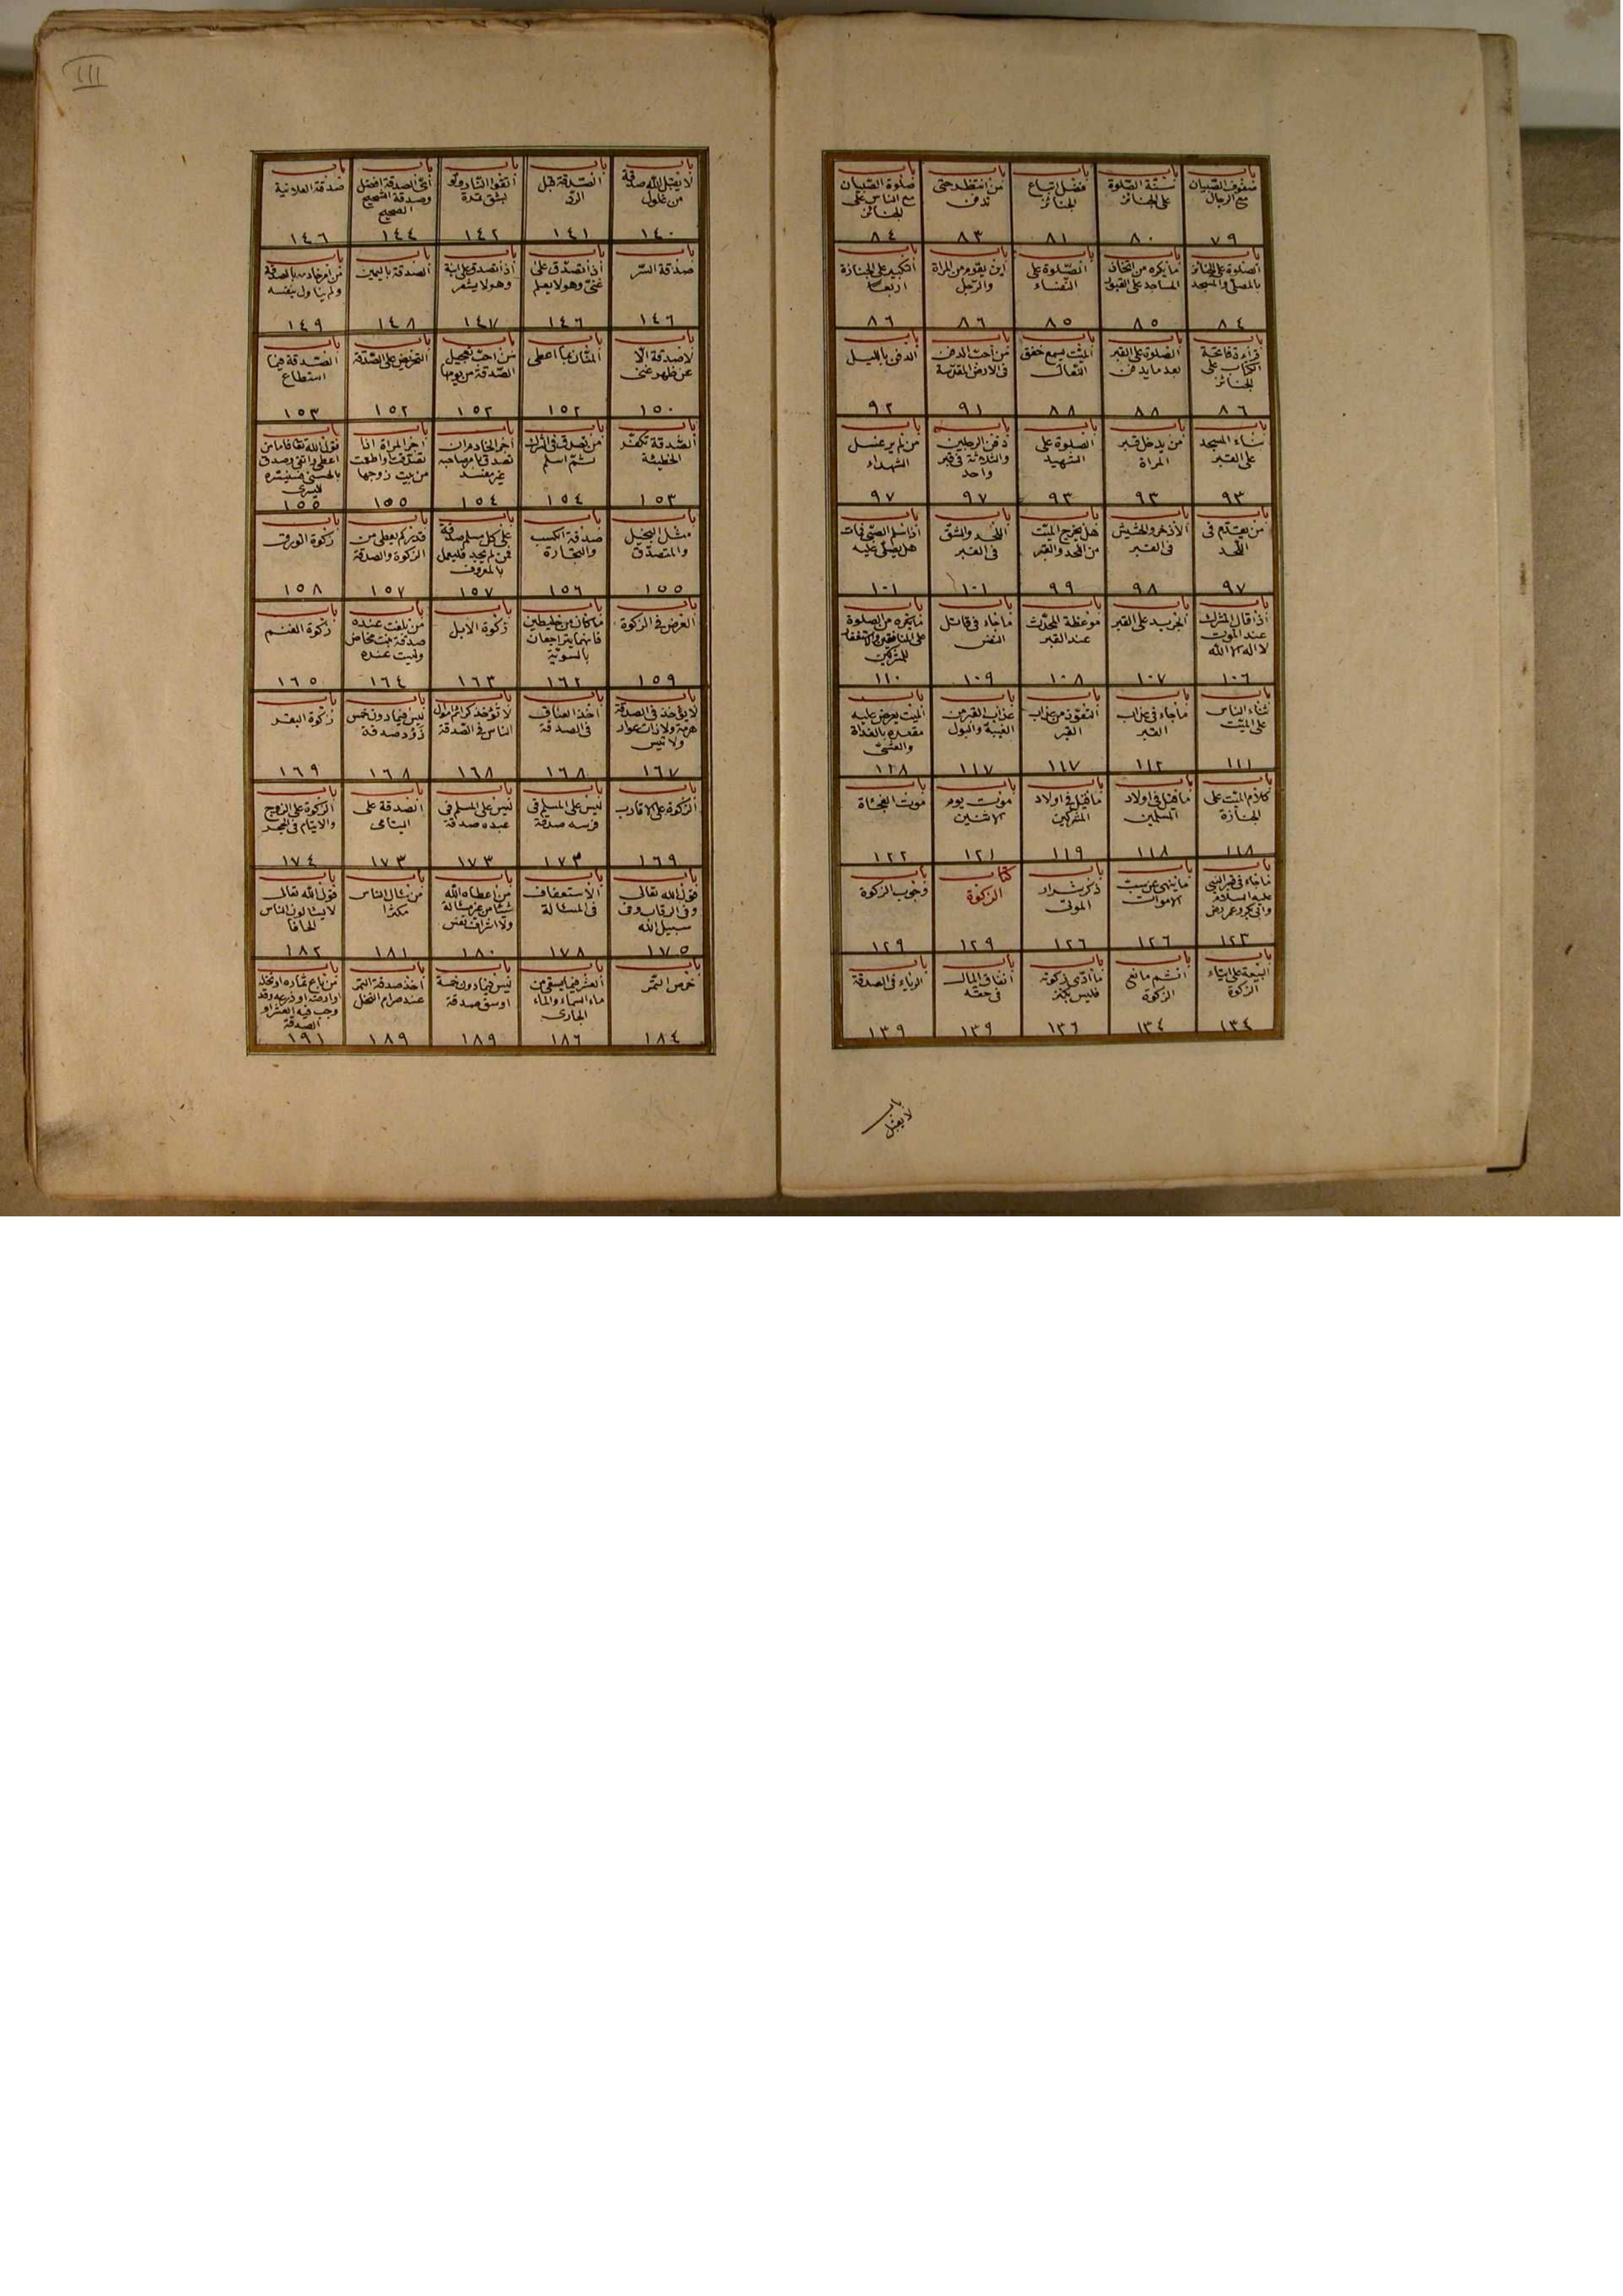 باب
صفوف الصبيان
مع الرجال
٧٩
باب
سنة الصلوة
على الجنائز
٨٠
باب
فضل اتباع
الجنائز
٨١
باب
من انتظر حتى
تدفن
٨٣
باب
صلوة الصبيان
مع الناس على
الجنائز
٨٤
باب
الصلوة على الجنائز
بالمصلى والمسجد
٨٤
باب
ما يكره من اتخاذ
المساجد على القبور
٨٥
باب
الصلوة على
النفساء
٨٥
باب
اين يقوم من المراة
والرجل
٨٦
باب
التكبير على الجنازة
اربعا
٨٦
باب
قراءة فاتحة
الكتاب على
الجنائز
٨٦
باب
الصلوة على القبر
بعد ما يدفن
٨٨
باب
الميت يسمع خفق
النعال
٨٨
باب
من احب الدفن
فى الارض المقدسة
٩١
باب
الدفن بالليل
٩٢
باب
بناء المسجد
على القبر
٩٣
باب
من يدخل قبر
المراة
٩٣
باب
الصلوة على
الشهيد
٩٣
باب
دفن الرجلين
والثلاثة فى قبر
واحد
٩٧
باب
من لم ير غسل
الشهداء
٩٧
باب
من يقدم فى
اللحد
٩٧
باب
الاذخر والحشيش
فى القبر
٩٨
باب
هل يخرج الميت
من اللحد والقبر
٩٩
باب
اللحد والشق
فى القبر
١٠١
باب
اذا اسلم الصبى فمات
هل يصلى عليه
١٠١
باب
اذا قال المشرك
عند الموت
لا اله الا الله
١٠٦
باب
الجريد على القبر
١٠٧
باب
موعظة المحدث
عند القبر
١٠٨
باب
ما جاء فى قاتل
النفس
١٠٩
باب
ما يكره من الصلوة
على المنافقين والاستغفار
للمشركين
١١٠
باب
ثناء الناس
على الميت
١١١
باب
ما جاء فى عذاب
القبر
١١٢
باب
التعوذ من عذاب
القبر
١١٧
باب
عذاب القبر من
الغيبة والبول
١١٧
باب
الميت يعرض عليه
مقعده بالغداة
والعشى
١٢٨
باب
كلام الميت على
الجنازة
١١٨
باب
ما قيل فى اولاد
المسلمين
١١٨
باب
ما قيل فى اولاد
المشركين
١١٩
باب
موت يوم
الاثنين
١٢١
باب
موت الفجئاة
١٢٢
باب
ما جاء فى قبر النبى
عليه السلام
وابى بكر وعمر رض
١٢٣
باب
ما ينهى عن سب
الاموات
١٢٦
باب
ذكر شرار
الموتى
١٢٦
كتاب
الزكوة
١٢٩
باب
وجوب الزكوة
١٢٩
باب
البيعة على ايتاء
الزكوة
١٣٤
باب
اثم مانعى
الزكوة
١٣٤
باب
ما ادى زكوته
فليس بكنز
١٣٦
باب
انفاق المال
فى حقه
١٣٩
باب
الرياء فى الصدقة
١٣٩
باب
لا يقبل
III
باب
لا يقبل الله صدقة
من غلول
١٤٠
باب
الصدقة قبل
الرد
١٤١
باب
اتقوا النار ولو
بشق تمرة
١٤٢
باب
اى الصدقة افضل
وصدقة الشحيح
الصحيح
١٤٤
باب
صدقة العلانية
١٤٦
باب
صدقة السر
١٤٦
باب
اذا تصدق على
غنى وهو لا يعلم
١٤٦
باب
اذا تصدق على ابنه
وهو لا يشعر
١٤٧
باب
الصدقة باليمين
١٤٨
باب
من امر خادمه بالصدقة
ولم يناول بنفسه
١٤٩
باب
لا صدقة الا
عن ظهر غنى
١٥٠
باب
المنان بما اعطى
١٥٢
باب
من احب تعجيل
الصدقة من يومها
١٥٢
باب
التحريض على الصدقة
١٥٢
باب
الصدقة فيما
استطاع
١٥٣
باب
الصدقة تكفر
الخطيئة
١٥٣
باب
من تصدق فى الشرك
ثم اسلم
١٥٤
باب
اجر الخادم اذا
تصدق بامر صاحبه
غير مفسد
١٥٤
باب
اجر المراة اذا
تصدقت او اطعمت
من بيت زوجها
١٥٥
باب
قول الله تعا فاما من
اعطى واتقى وصدق
بالحسنى فسنيسره
لليسرى
١٥٥
باب
مثل البخيل
والمتصدق
١٥٥
باب
صدقة الكسب
والتجارة
١٥٦
باب
على كل مسلم صدقة
فمن لم يجد فليعمل
بالمعروف
١٥٧
باب
قدر كم يعطى من
الزكوة والصدقة
١٥٧
باب
زكوة الورق
١٥٨
باب
العرض فى الزكوة
١٥٩
باب
ما كان من خليطين
فانهما يتراجعان
بالسوية
١٦٢
باب
زكوة الابل
١٦٣
باب
من بلغت عنده
صدقة بنت مخاض
وليست عنده
١٦٤
باب
زكوة الغنم
١٦٥
باب
لا يؤخذ فى الصدقة
هرمة ولا ذات عوار
ولا تيس
١٦٧
باب
اخذ العناق
فى الصدقة
١٦٨
باب
لا تؤخذ كرائم اموال
الناس فى الصدقة
١٦٨
باب
ليس فيما دون خمس
ذود صدقة
١٦٨
باب
زكوة البقر
١٦٩
باب
الزكوة على الاقارب
١٦٩
باب
ليس على المسلم فى
فرسه صدقة
١٧٣
باب
ليس على المسلم فى
عبده صدقة
١٧٣
باب
الصدقة على
اليتامى
١٧٣
باب
الزكوة على الزوج
والايتام فى الحجر
١٧٤
باب
قول الله تعالى
وفى الرقاب وفى
سبيل الله
١٧٥
باب
الاستعفاف
فى المسئالة
١٧٨
باب
من اعطاه الله
شيئا من غير مسئالة
ولا اشراف نفس
١٨٠
باب
من سئال الناس
مكثرا
١٨١
باب
قول الله تعالى
لا يسئالون الناس
الحافا
١٨٢
باب
خرص التمر
١٨٤
باب
العشر فيما يسقى من
ماء السماء والماء
الجارى
١٨٦
باب
ليس فيما دون خمسة
اوسق صدقة
١٨٩
باب
اخذ صدقة التمر
عند صرام النخل
١٨٩
باب
من باع ثماره او نخله
او ارضه او زرعه وقد
وجب فيه العشر او
الصدقة
١٩١